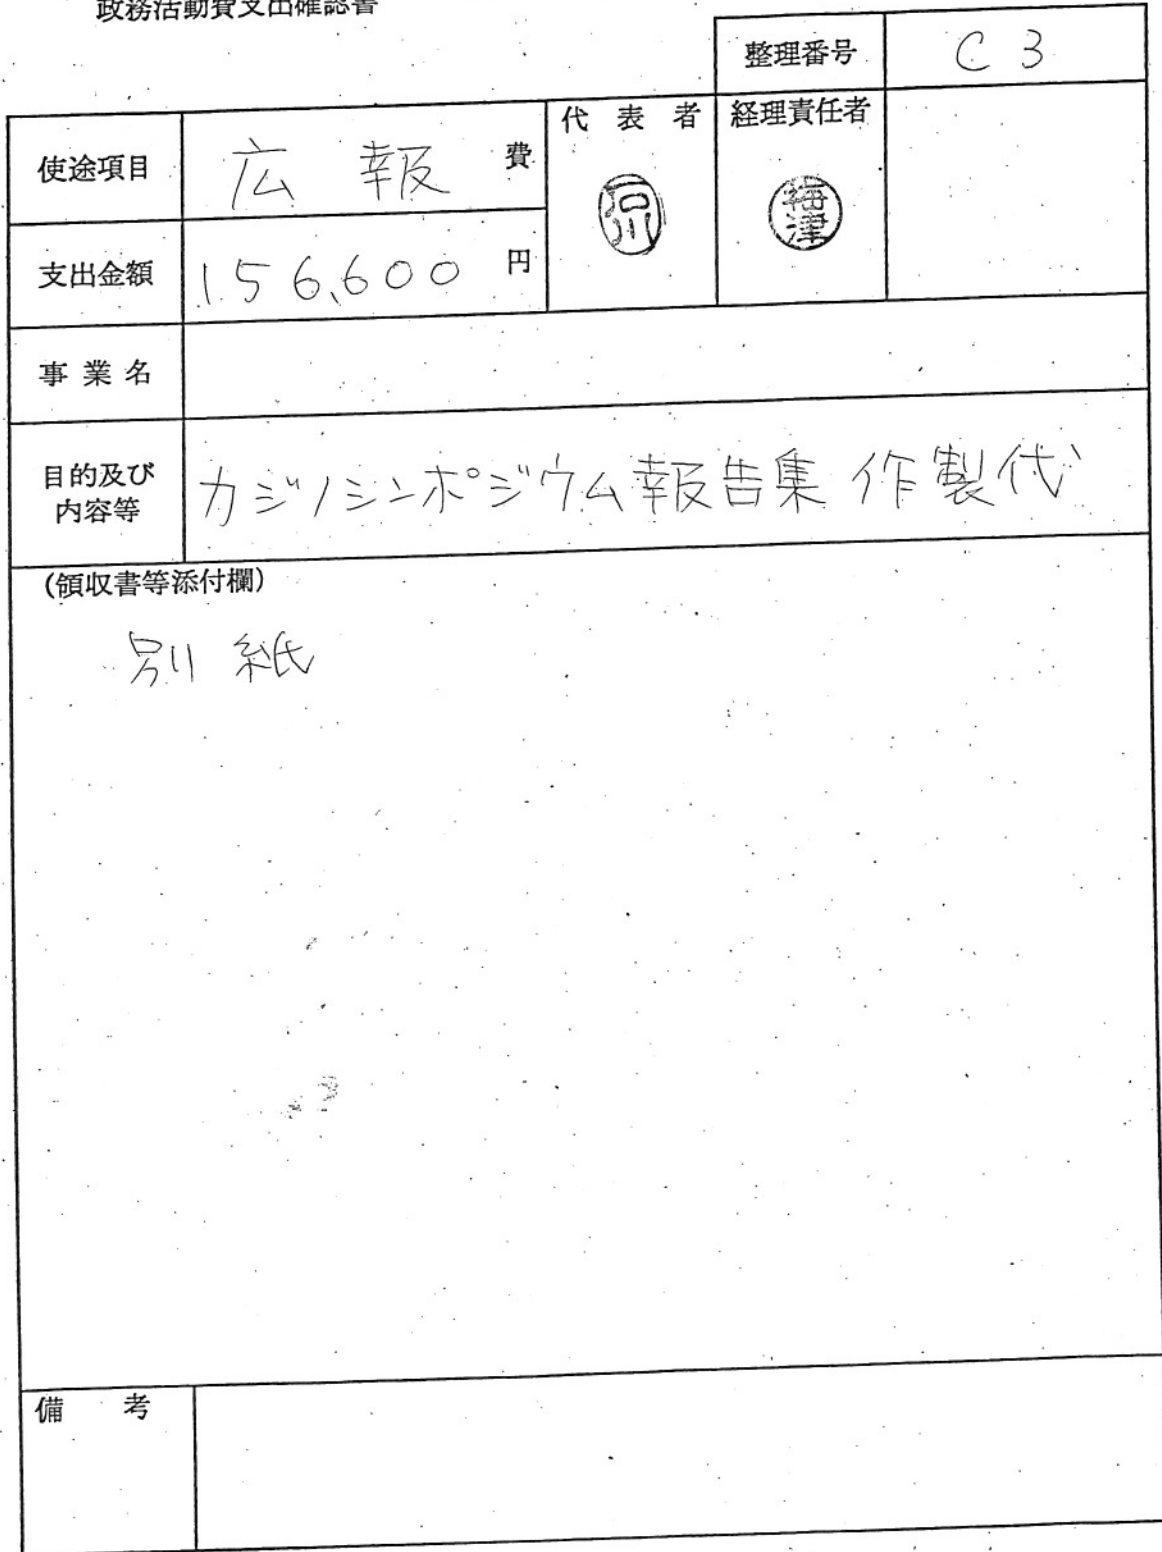 政務活動費支出確認書
整理番号 C 3
使途項目 広報 費
代表者 経理責任者
石川 梅津
支出金額 156,600 円
事業名
目的及び
内容等
カジノシンポジウム報告集 作製代
(領収書等添付欄)
別紙
備考